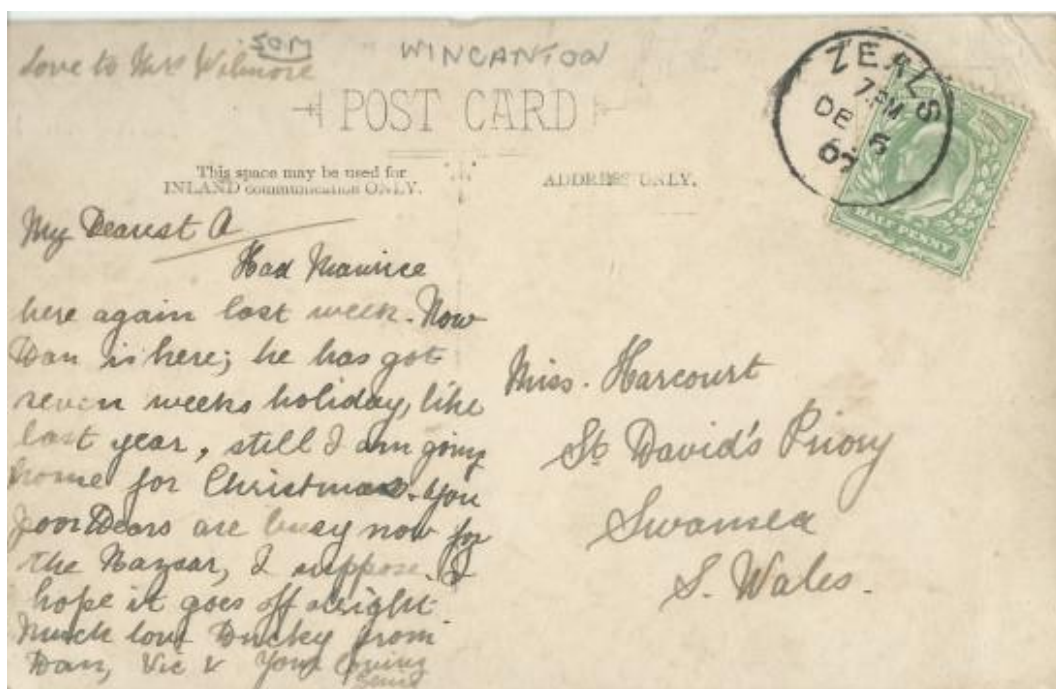 Love to Mrs Wilmore
SOM
WINCANTON
POST CARD
This space may be used for
INLAND communication ONLY.
ADDRESS ONLY.
ZEALS
7. PM
DE 5
07
HALFPENNY
My Dearest A
Had Maurice
here again last week. Now
Dan is here; he has got
seven weeks holiday, like
last year, still I am going
home for Christmas. You
poor Dears are busy now for
the Bazaar, I suppose. I
hope it goes off alright
Much love Ducky from
Dan, Vic & Your loving
Miss. Harcourt
St David's Priory
Swansea
S. Wales.